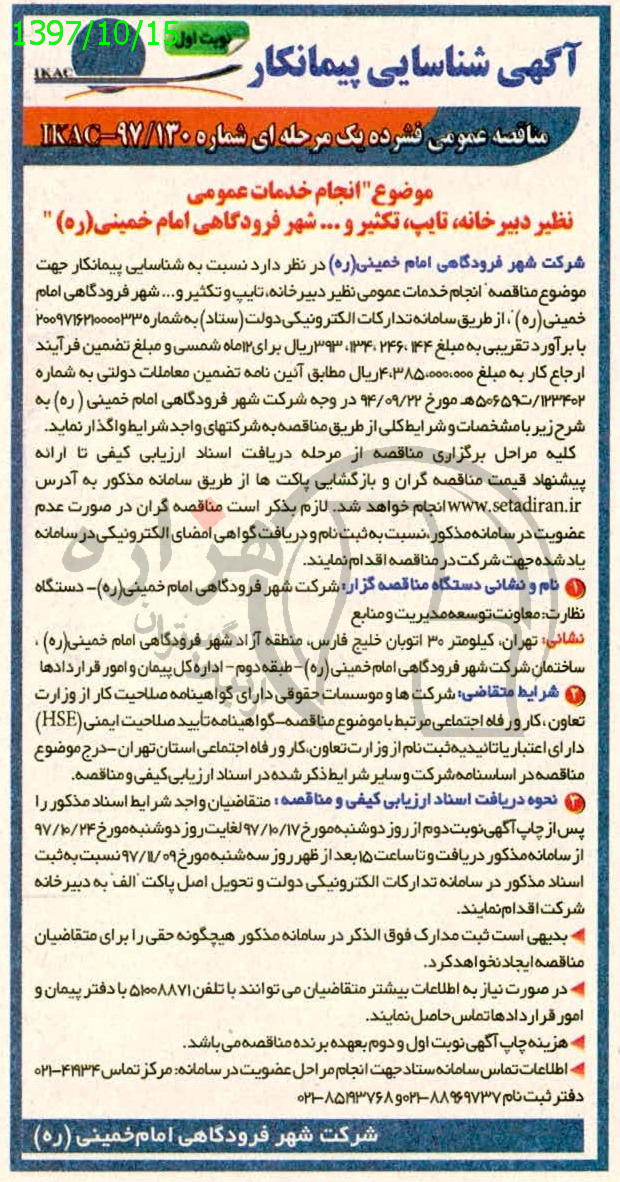 1397/10/15
نوبت اول
IKAC
آگهی شناسایی پیمانکار
مناقصه عمومی فشرده یک مرحله ای شماره ۹۷/۱۳۰-IKAC
موضوع"انجام خدمات عمومی
نظیر دبیرخانه، تایپ، تکثیر و ... شهر فرودگاهی امام خمینی(ره) "
شرکت شهر فرودگاهی امام خمینی(ره) در نظر دارد نسبت به شناسایی پیمانکار جهت
موضوع مناقصه" انجام خدمات عمومی نظیر دبیرخانه، تایپ و تکثیر و... شهر فرودگاهی امام
خمینی(ره)"، از طریق سامانه تدارکات الکترونیکی دولت (ستاد) به شماره ۲۰۰۹۷۱۶۲۱۰۰۰۰۳۳
با برآورد تقریبی به مبلغ ۳۹۳،۱۳۴،۲۴۶،۱۴۴ ریال برای ۱۲ماه شمسی و مبلغ تضمین فرآیند
ارجاع کار به مبلغ ۴،۳۸۵،۰۰۰،۰۰۰ریال مطابق آئین نامه تضمین معاملات دولتی به شماره
۱۲۳۴۰۲/ت۵۰۶۵۹هـ مورخ ۹۴/۰۹/۲۲ در وجه شرکت شهر فرودگاهی امام خمینی ( ره) به
شرح زیر با مشخصات و شرایط کلی از طریق مناقصه به شرکتهای واجد شرایط واگذار نماید.
کلیه مراحل برگزاری مناقصه از مرحله دریافت اسناد ارزیابی کیفی تا ارائه
پیشنهاد قیمت مناقصه گران و بازگشایی پاکت ها از طریق سامانه مذکور به آدرس
www.setadiran.ir انجام خواهد شد. لازم بذکر است مناقصه گران در صورت عدم
عضویت در سامانه مذکور، نسبت به ثبت نام و دریافت گواهی امضای الکترونیکی در سامانه
یاد شده جهت شرکت در مناقصه اقدام نمایند.
۱ نام و نشانی دستگاه مناقصه گزار: شرکت شهر فرودگاهی امام خمینی(ره)- دستگاه
نظارت: معاونت توسعه مدیریت و منابع
نشانی: تهران، کیلومتر ۳۰ اتوبان خلیج فارس، منطقه آزاد شهر فرودگاهی امام خمینی(ره) ،
ساختمان شرکت شهر فرودگاهی امام خمینی(ره)- طبقه دوم- اداره کل پیمان و امور قراردادها
۲ شرایط متقاضی: شرکت ها و موسسات حقوقی دارای گواهینامه صلاحیت کار از وزارت
تعاون ، کار و رفاه اجتماعی مرتبط با موضوع مناقصه- گواهینامه تأیید صلاحیت ایمنی (HSE)
دارای اعتبار یا تائیدیه ثبت نام از وزارت تعاون، کار و رفاه اجتماعی استان تهران -درج موضوع
مناقصه در اساسنامه شرکت و سایر شرایط ذکر شده در اسناد ارزیابی کیفی و مناقصه.
۳ نحوه دریافت اسناد ارزیابی کیفی و مناقصه : متقاضیان واجد شرایط اسناد مذکور را
پس از چاپ آگهی نوبت دوم از روز دوشنبه مورخ ۹۷/۱۰/۱۷ لغایت روز دوشنبه مورخ ۹۷/۱۰/۲۴
از سامانه مذکور دریافت و تا ساعت ۱۵ بعد از ظهر روز سه شنبه مورخ ۹۷/۱۱/۰۹ نسبت به ثبت
اسناد مذکور در سامانه تدارکات الکترونیکی دولت و تحویل اصل پاکت "الف" به دبیرخانه
شرکت اقدام نمایند.
بدیهی است ثبت مدارک فوق الذکر در سامانه مذکور هیچگونه حقی را برای متقاضیان
مناقصه ایجاد نخواهد کرد.
در صورت نیاز به اطلاعات بیشتر متقاضیان می توانند با تلفن ۵۱۰۰۸۸۷۱ با دفتر پیمان و
امور قراردادها تماس حاصل نمایند.
هزینه چاپ آگهی نوبت اول و دوم بعهده برنده مناقصه می باشد.
اطلاعات تماس سامانه ستاد جهت انجام مراحل عضویت در سامانه: مرکز تماس ۴۱۹۳۴-۰۲۱
دفتر ثبت نام ۸۸۹۶۹۷۳۷-۰۲۱ و ۸۵۱۹۳۷۶۸-۰۲۱
شرکت شهر فرودگاهی امام خمینی (ره)